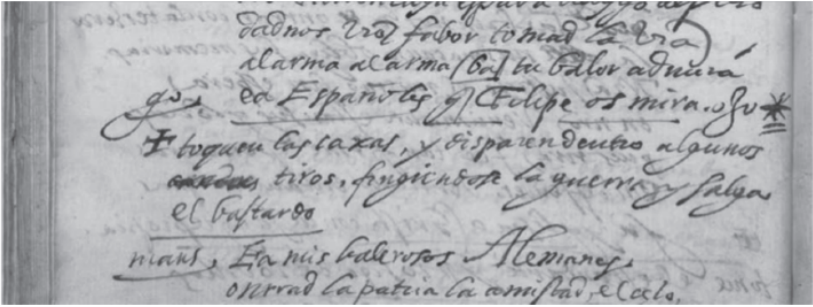 dadnos vro fabor tomad la via
al arma al arma ba tu balor admira
go, ea Españoles q Felipe os mira.
toquen las caxas, y disparen dentro algunos
tiros, fingiendose la guerra y salga
el bastardo
mans, Ea mis balerosos Alemanes,
onrrad la patria la amistad, el celo